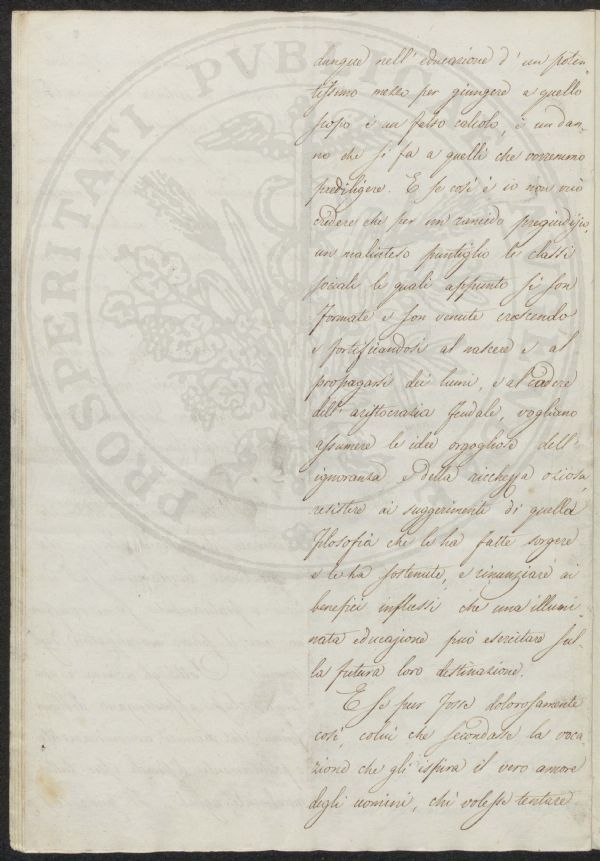 PROSPERITATI PVBLICAE
dunque nell' educazione d' un poten
tissimo mezzo per giungere a quello
scopo è un falso calcolo, è un dan-
no che si fa a quelli che vorremmo
prediligere. E se così è io non vuò
credere che per un rancido pregiudizio,
un malinteso puntiglio le classi
sociali le quali appunto si son
formate e son venute crescendo
e fortificandosi al nascere e al
propagarsi dei lumi, e al cadere
dell' aristocrazia feudale, vogliano
assumere le idee orgogliose dell'
ignoranza e della ricchezza oziosa,
resistere ai suggerimenti di quella
filosofia che le ha fatte sorgere
e le ha sostenute, e rinunziare ai
benefici influssi che una illumi-
nata educazione può esercitare sul-
la futura loro destinazione.
E se pur fosse dolorosamente
così, colui che secondasse la voca
zione che gli ispira il vero amore
degli uomini, chi volesse tentare